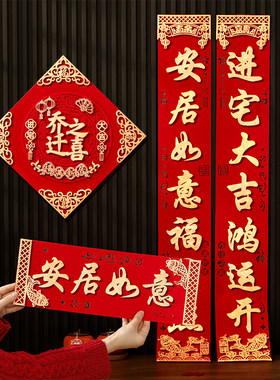 乔迁之喜
进宅大吉鸿运开
安居如意福
安居如意